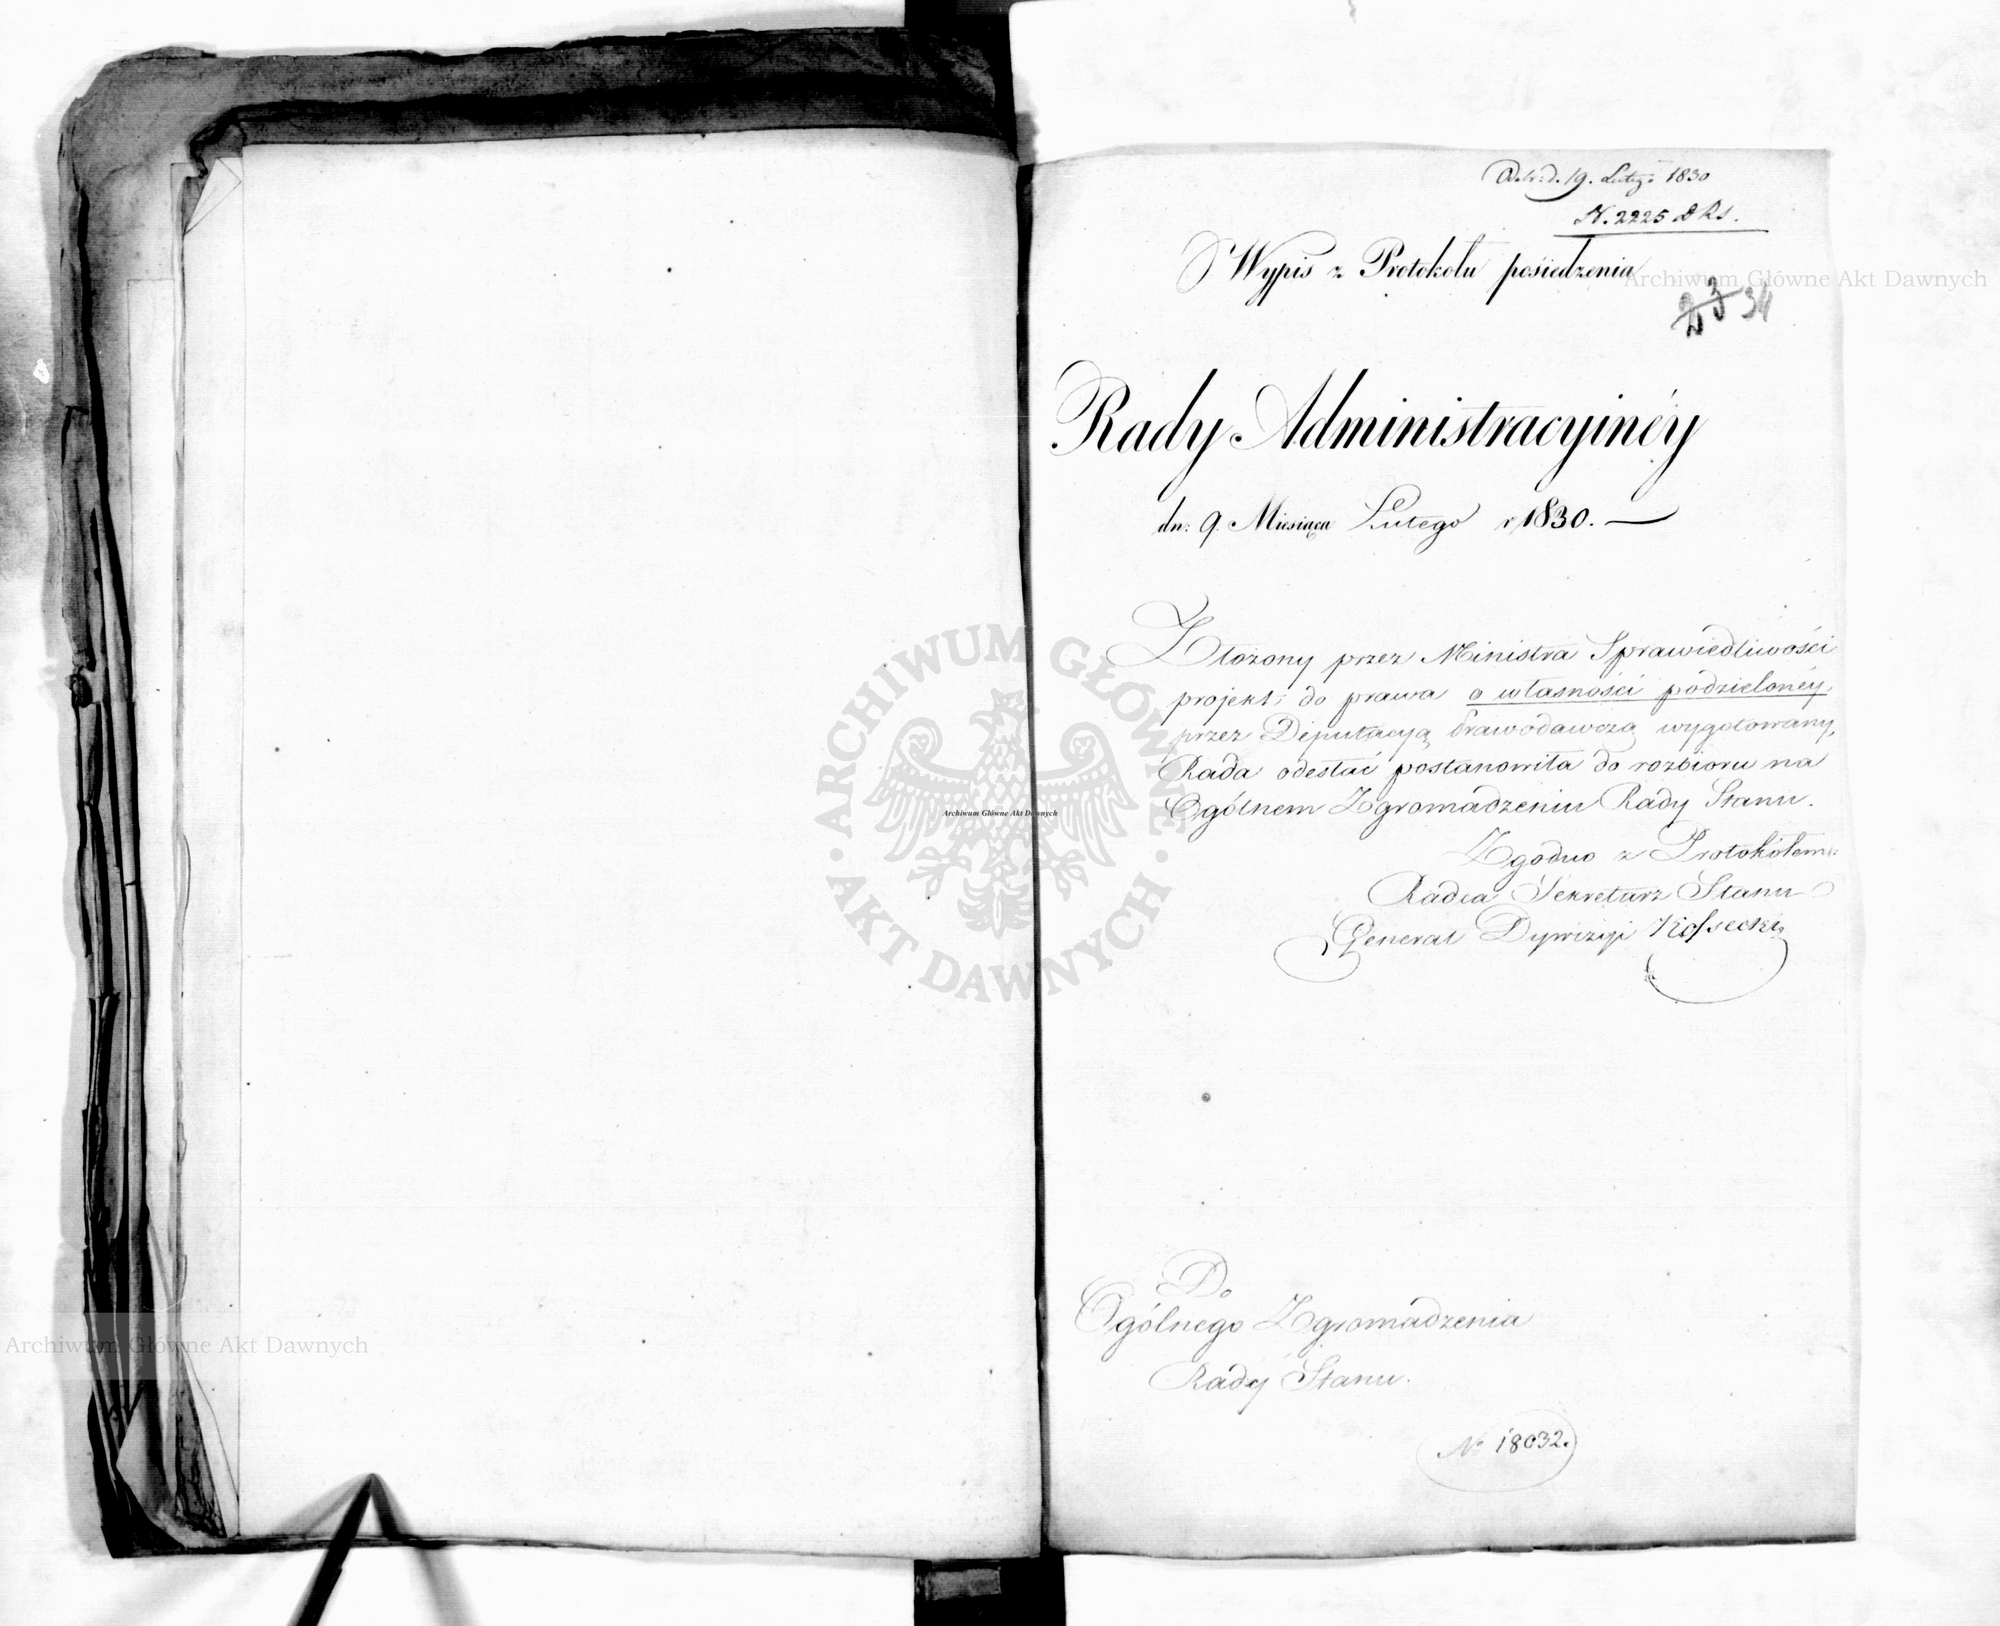 Odebr: d. 19. Lutego 1830
N. 2225
Wypis z Protokołu posiedzenia
Archiwum Główne Akt Dawnych
23 34
Rady Administracyinéy
dn: 9. Miesiąca Lutego r 1830. —
Złożony przez Ministra Sprawiedliwości
projekt, do prawa o własności podzielonéy,
przez Deputacyą Prawodawczą wygotowany,
Rada odesłać postanowiła do rozbioru na
Ogólnem Zgromadzeniu Rady Stanu.
Zgodno z Protokółem:
Radca Sekretarz Stanu
Generał Dywizyi Kossecki
Do
Ogólnego Zgromadzenia
Rady Stanu.
No 18032.
ARCHIWUM GŁÓWNE
AKT DAWNYCH
Archiwum Główne Akt Dawnych
Archiwum Główne Akt Dawnych